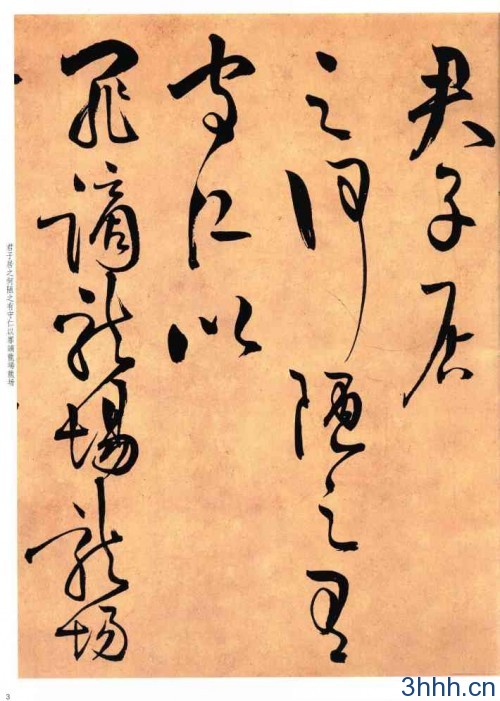 君子居
之何陋之有
守仁以
罪谪龙场龙场
君子居之何陋之有守仁以罪謫龍場龍場
3
3hhh.cn